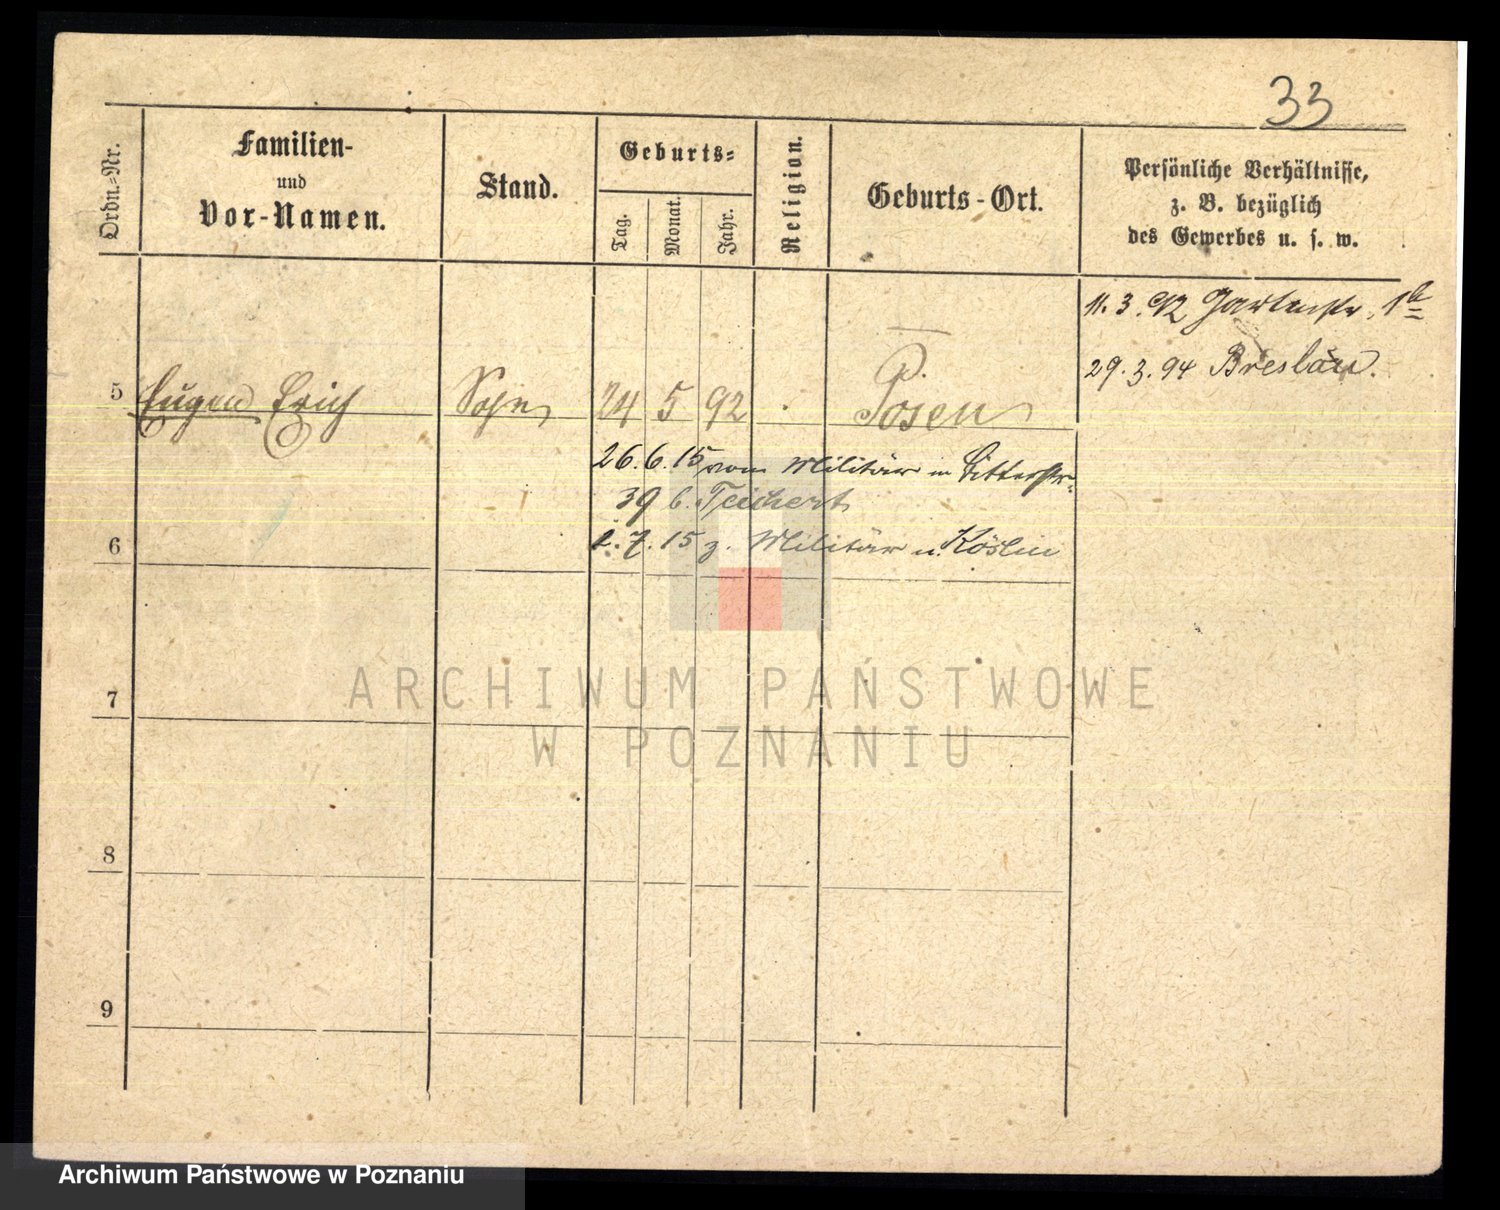 33
Ordn.-Nr.
Familien-
und
Vor-Namen.
Stand.
Geburts-
Tag.
Monat.
Jahr.
Religion.
Geburts-Ort.
Persönliche Verhältnisse,
z. B. bezüglich
des Gewerbes u. s. w.
11. 3. 92 Gartenstr. 1b
29. 3. 94 Breslau.
5 Eugen Erich Sohn 24 5 92 Posen
26. 6. 15 vom Militär in Ritterstr.
39 b. Teichert
6
2. 7. 15 z. Militär n. Köslin
7
8
9
ARCHIWUM PAŃSTWOWE
W POZNANIU
Archiwum Państwowe w Poznaniu